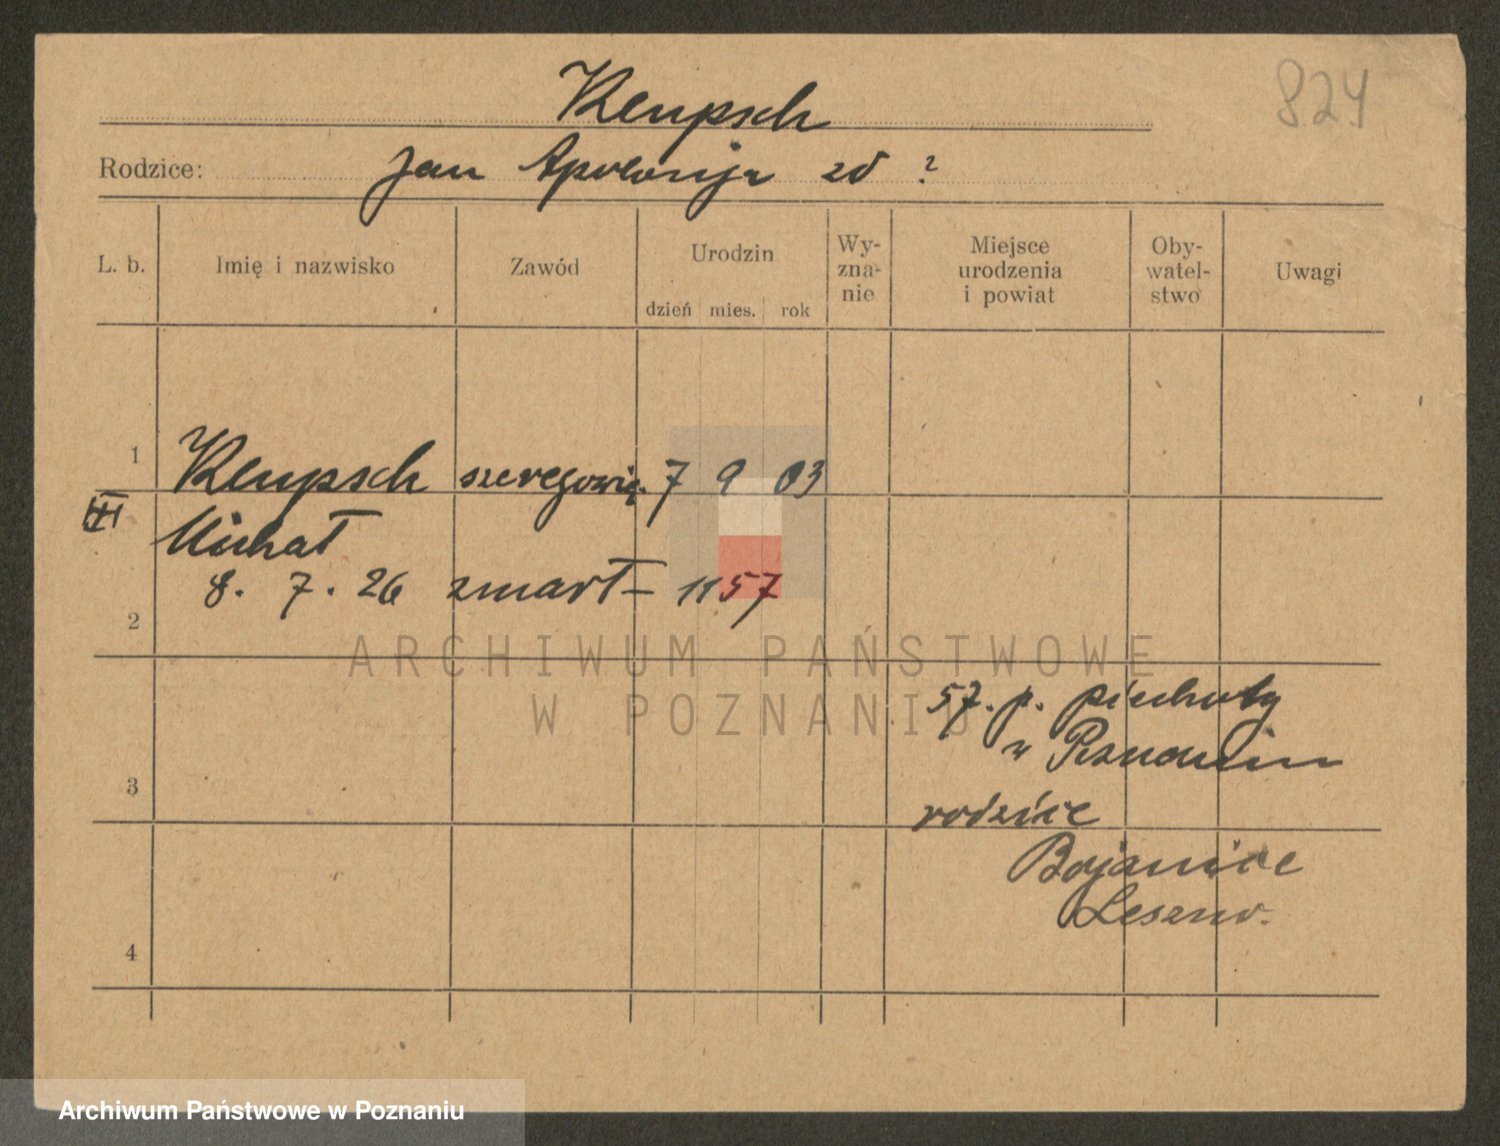 824
Klupsch
Rodzice: Jan Apolonija zd ?
L. b. Imię i nazwisko Zawód Urodzin dzień mies. rok Wy-zna-nie Miejsce urodzenia i powiat Oby-watel-stwo Uwagi
1 Klupsch szeregowiq. 7 9 03
Michał
8. 7. 26 zmarł – 1157
2
ARCHIWUM PAŃSTWOWE
W POZNANIU
57. p. piechoty
w Poznaniu
3
rodzice
Bojanice
Leszno.
4
Archiwum Państwowe w Poznaniu